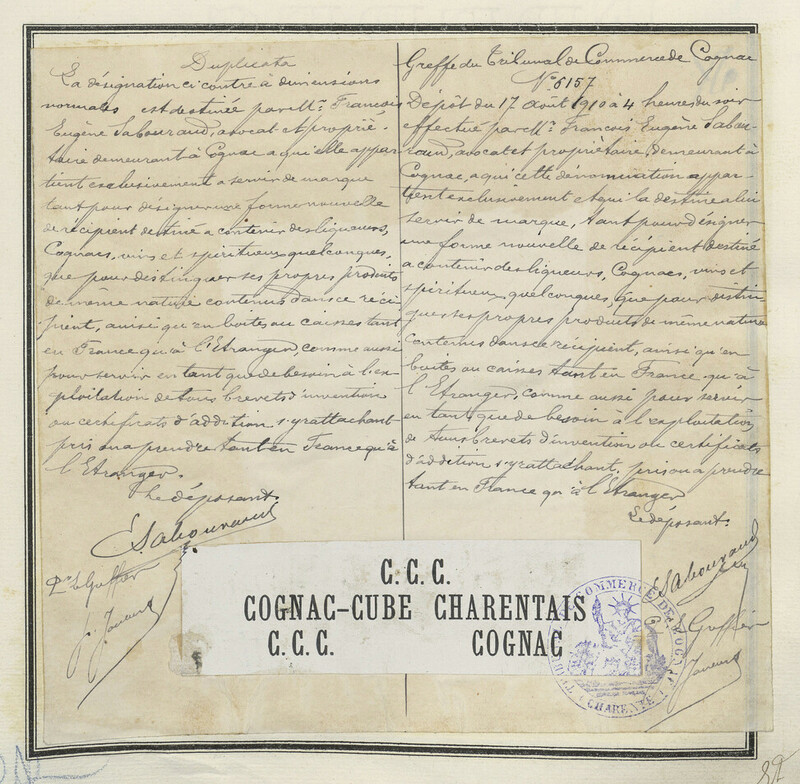 Duplicata
La désignation ci contre à dimensions
normales est destinée par Mr. François
Eugène Sabouraud, avocat et proprié-
taire demeurant à Cognac a qui elle appar-
tient exclusivement a servir de marque
tant pour désigner une forme nouvelle
de récipient destiné a contenir des liqueurs,
Cognacs, vins et spiritueux quelconques,
que pour distinguer ses propres produits
de même nature contenus dans ce réci-
pient, ainsi qu'en boites ou caisses tant
en France qu'à l'Etranger, comme aussi
pour servir en tant que de besoin à l'ex-
ploitation de tous brevets d'invention
ou certificats d'addition s'y rattachant
pris ou a prendre tant en France qu'à
l'Etranger.
Le déposant.
ESabouraud
Le Greffier
Greffe du Tribunal de Commerce de Cognac
N° 6157
Dépôt du 17 Août 1910 à 4 heures du soir
effectué par Mr. François Eugène Sabou-
raud, avocat et propriétaire, demeurant à
Cognac, a qui cette dénomination appar-
tient exclusivement et qui la destine a lui
servir de marque, tant pour désigner
une forme nouvelle de récipient destiné
a contenir des liqueurs, Cognacs, vins et
spiritueux quelconques, que pour distin
guer ses propres produits de même nature
contenus dans ce récipient, ainsi qu'en
boites ou caisses tant en France qu'à
l'Etranger, comme aussi pour servir
en tant que de besoin à l'exploitation
de tous brevets d'invention ou certificats
d'addition s'y rattachant, pris ou a prendre
tant en France qu'à l'Etranger
Le déposant.
ESabouraud
Le Greffier
C.C.C.
COGNAC-CUBE CHARENTAIS
C.C.C. COGNAC
TRIBUNAL DE COMMERCE DE COGNAC
(CHARENTE)